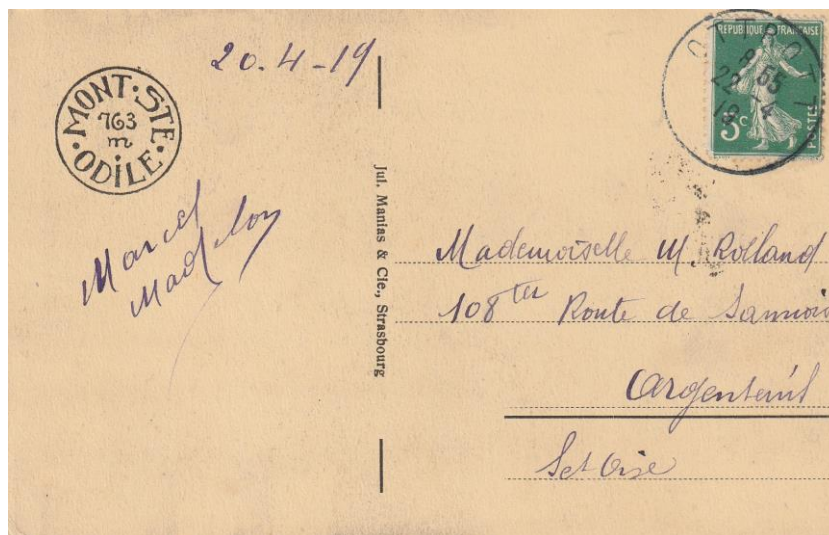 20.4-19
MONT·STE·
763
m
·ODILE·
Marcel
Jul. Manias & Cie., Strasbourg
RÉPUBLIQUE FRANÇAISE
5c
POSTES
OTTROTT
8 55
22 4
19
Mademoiselle M. Rolland
108ter Route de Sannois
Argenteuil
S et Oise